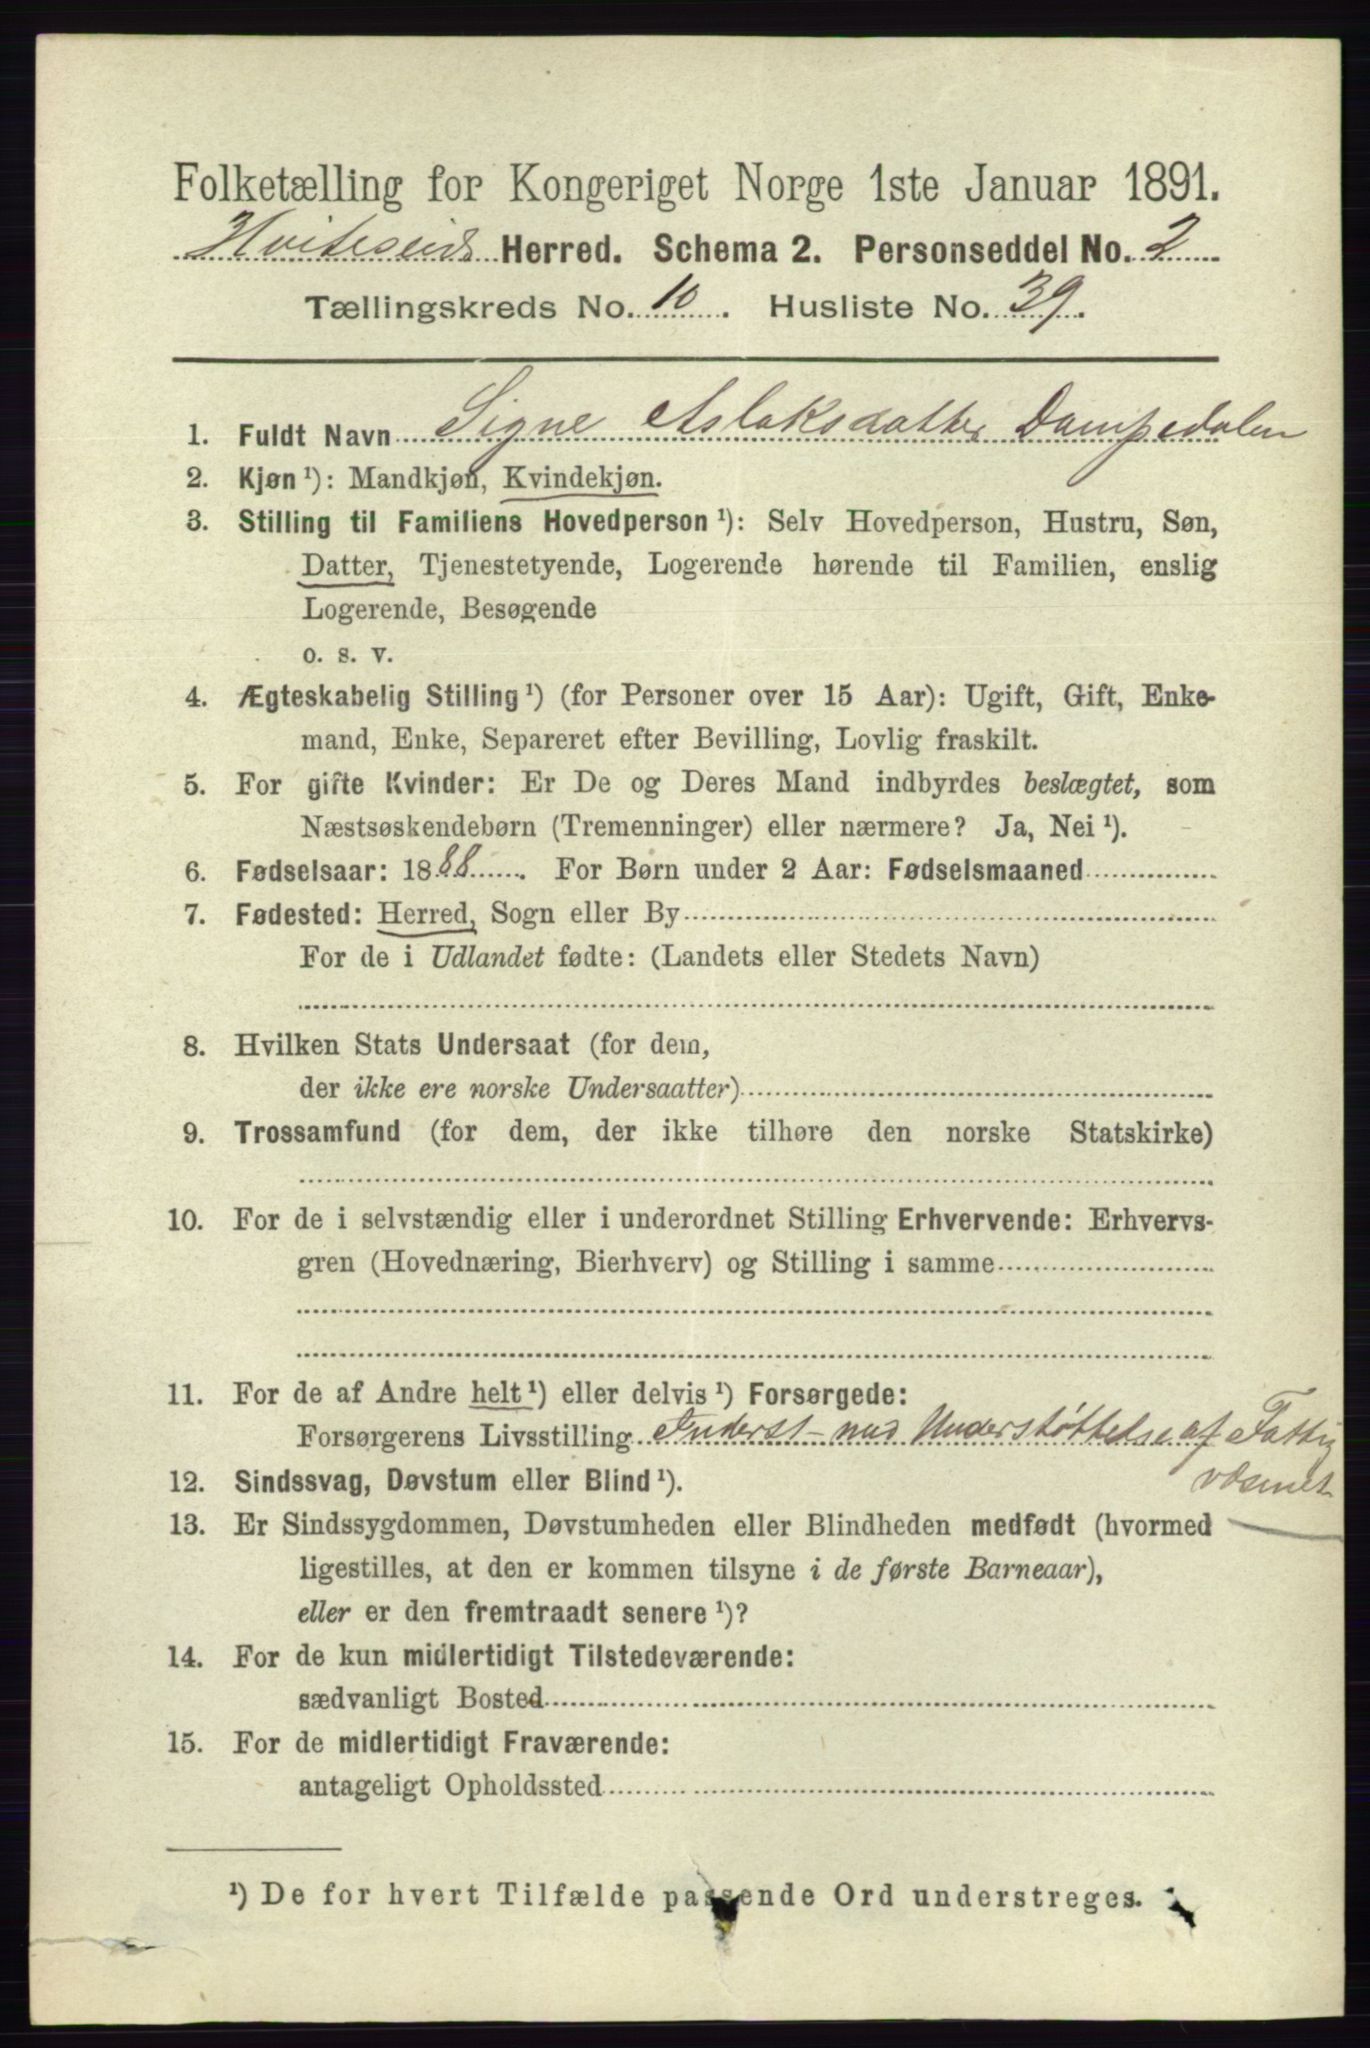 Folketælling for Kongeriget Norge 1ste Januar 1891.
Hviteseid Herred. Schema 2. Personseddel No. 2
Tællingskreds No. 10. Husliste No. 39.
1. Fuldt Navn Signe Aslaksdatter Dampedalen
2. Kjøn ¹): Mandkjøn, Kvindekjøn.
3. Stilling til Familiens Hovedperson ¹): Selv Hovedperson, Hustru, Søn,
Datter, Tjenestetyende, Logerende hørende til Familien, enslig
Logerende, Besøgende
o. s. v.
4. Ægteskabelig Stilling ¹) (for Personer over 15 Aar): Ugift, Gift, Enke-
mand, Enke, Separeret efter Bevilling, Lovlig fraskilt.
5. For gifte Kvinder: Er De og Deres Mand indbyrdes beslægtet, som
Næstsøskendebørn (Tremenninger) eller nærmere? Ja, Nei ¹).
6. Fødselsaar: 1888. For Børn under 2 Aar: Fødselsmaaned
7. Fødested: Herred, Sogn eller By
For de i Udlandet fødte: (Landets eller Stedets Navn)
8. Hvilken Stats Undersaat (for dem,
der ikke ere norske Undersaatter)
9. Trossamfund (for dem, der ikke tilhøre den norske Statskirke)
10. For de i selvstændig eller i underordnet Stilling Erhvervende: Erhvervs-
gren (Hovednæring, Bierhverv) og Stilling i samme
11. For de af Andre helt ¹) eller delvis ¹) Forsørgede:
Forsørgerens Livsstilling Inderst - med Understøttelse af Fattig
væsenet
12. Sindssvag, Døvstum eller Blind ¹).
13. Er Sindssygdommen, Døvstumheden eller Blindheden medfødt (hvormed
ligestilles, at den er kommen tilsyne i de første Barneaar),
eller er den fremtraadt senere ¹)?
14. For de kun midlertidigt Tilstedeværende:
sædvanligt Bosted
15. For de midlertidigt Fraværende:
antageligt Opholdssted
¹) De for hvert Tilfælde passende Ord understreges.